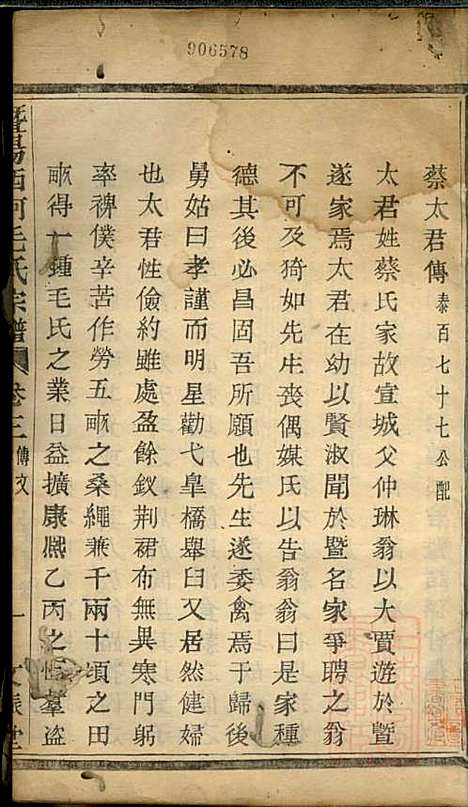 906578
蔡太君傳 泰百七十七公配
太君姓蔡氏家故宣城父仲琳翁以大賈遊於暨
遂家焉太君在幼以賢淑聞於暨名家爭聘之翁
不可及猗如先生喪偶媒氏以告翁翁曰是家種
德其後必昌固吾所願也先生遂委禽焉于歸後
舅姑曰孝謹而明星勸弋皐橋舉臼又居然健婦
也太君性儉約雖處盈餘釵荆裙布無異寒門躬
率裨僕辛苦作勞五畝之桑繩兼千兩十頃之田
畝得一鍾毛氏之業日益擴康熙乙丙之恆羣盗
暨陽西河毛氏宗譜 卷三 傳文 一 文振堂